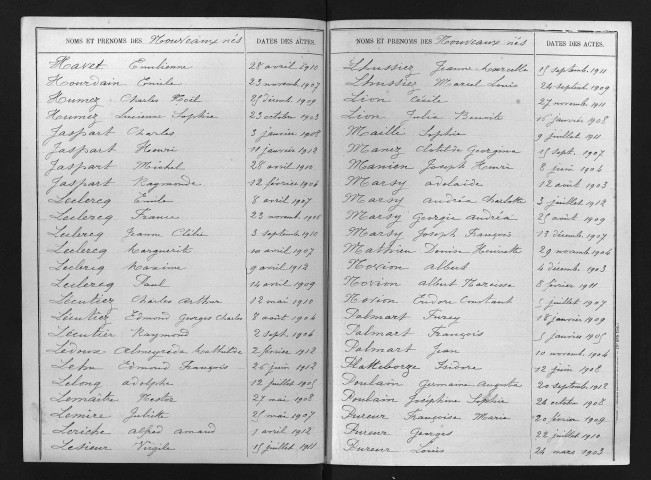 NOMS ET PRENOMS DES Nouveaux nés DATES DES ACTES.
Havet Emilienne 28 avril 1910
Hourdain Emile 23 novemb 1907
Humez Charles Noël 25 décemb 1909
Humez Lucienne Sophie 23 octobre 1903
Jaspart Charles 3 janvier 1908
Jaspart Henri 11 janvier 1912
Jaspart Michel 28 avril 1910
Jaspart Raymonde 12 février 1906
Leclercq Emile 8 avril 1907
Leclercq France 23 novemb
Leclercq Jeanne Clélie 3 septemb 1910
Leclercq Marguerit 10 avril 1907
Leclercq Maxime 9 avril 1912
Leclercq Paul 14 avril 1909
Lécutiez Charles Arthur 12 mai 1910
Lécutiez Edmond Georges Charles 8 août 1904
Lécutier Raymond 2 sept. 1906
Ledoux Mathilde 2 février 1912
Edmond François 26 juin 1912
Lelong adolphe 12 juillet 1905
Lemaître Nestor 27 mai 1908
Lemire Juliette 25 mai 1907
Leriche alfred amand 1 avril 1912
Lesieur Virgile 15 juillet 1911
NOMS ET PRENOMS DES Nouveaux nés DATES DES ACTES.
Lhussiez Jeanne Marcelle 15 septemb 1911
Lhussiez Marcel Louis 24 septemb 1909
Lion Cécile 27 novemb 1911
Lion Julia Benoit 16 janvier 1908
Maille Sophie 9 juillet 1911
Manez Clotilde Georgina 15 sept. 1907
Manien Joseph Henri 8 juin 1904
Marsy adelaïde 12 août 1903
Marsy Andréa Charlotte 3 juillet 1912
Marsy Georgie Andréa 25 août 1909
Marsy Joseph François 13 décemb. 1907
Mathieu Denise Henriette 29 novemb 1906
Novion Albert 4 décemb 1903
Novion Albert 8 février 1911
Novion Constant 5 juillet 1907
Palmart Fursy 18 janvier 1909
Palmart François 5 janvier 1905
Palmart Jean 10 novemb 1904
Platteborge Isidore 12 juin 1908
Poulain Germaine Augustin 20 septemb 1912
Poulain Joséphine Sophie 24 octobre 1908
Pureur Françoise Marie 20 février 1909
Pureur Georges 22 juillet 1910
Pureur Louis 24 mars 1903